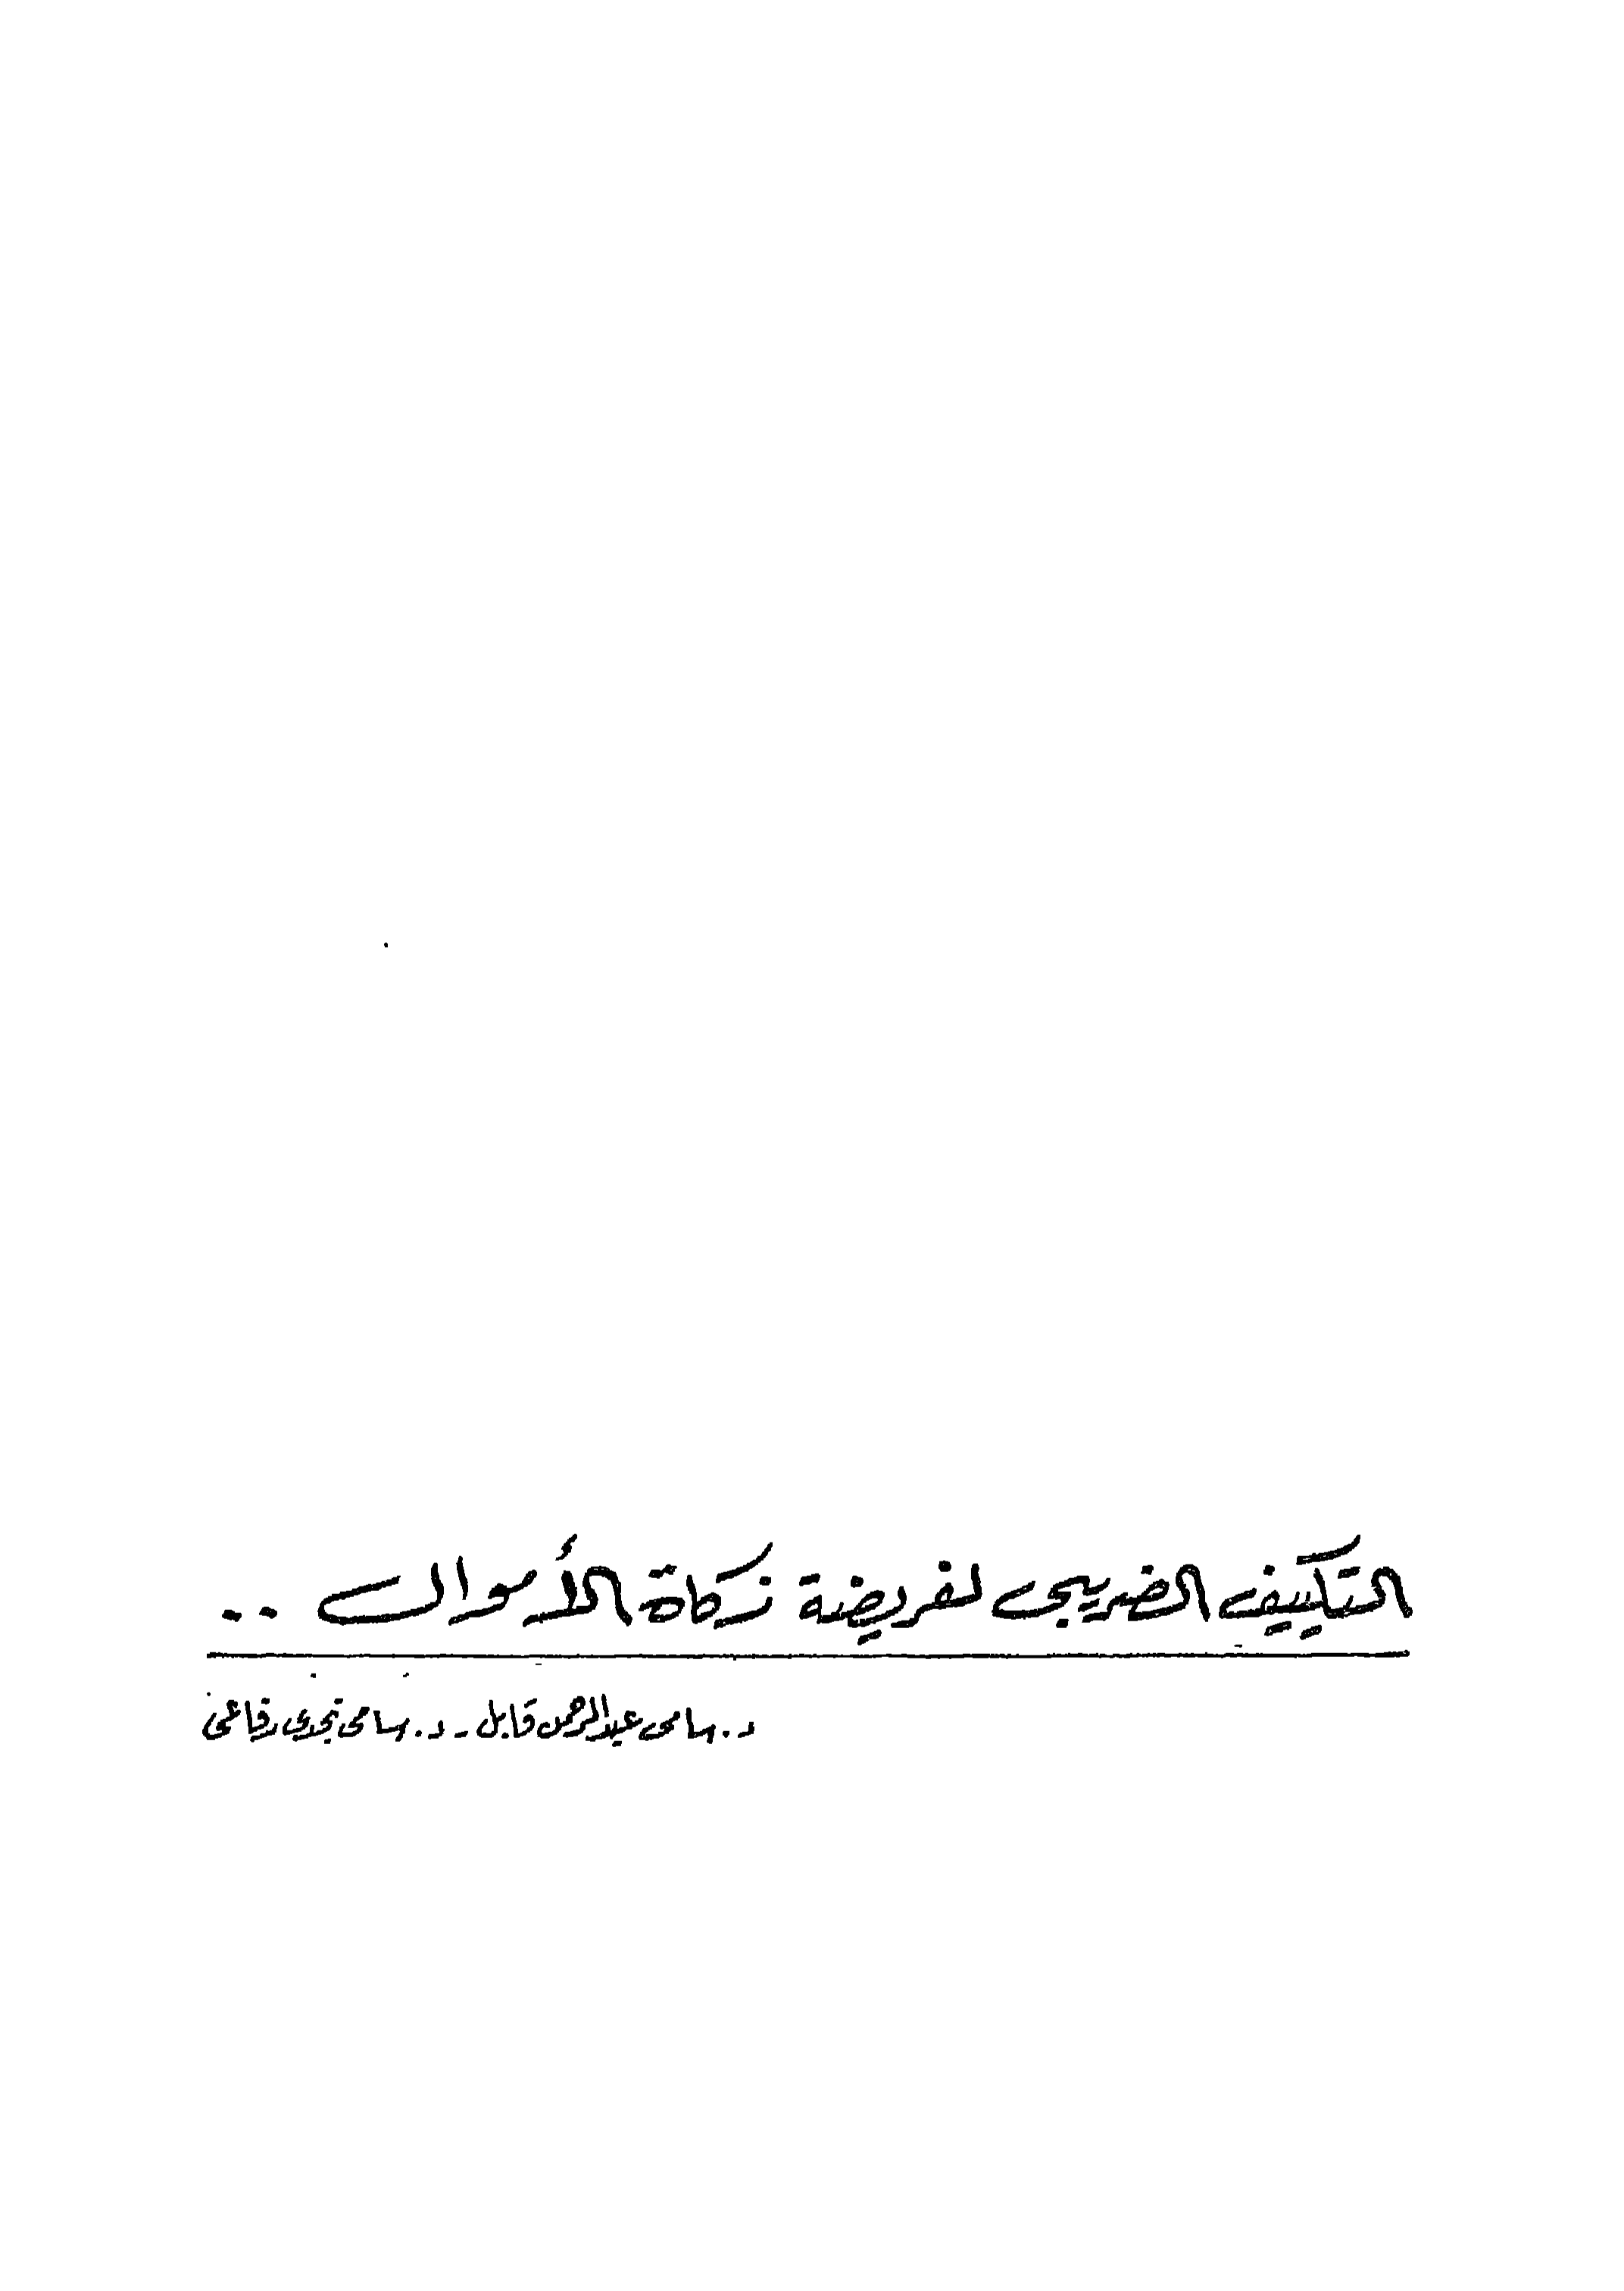 التكييف الضريبى لفريضة زكاة الأموال ..
د. سامى عبدالرحمن قابل - د. سامى نجدى رفاعى